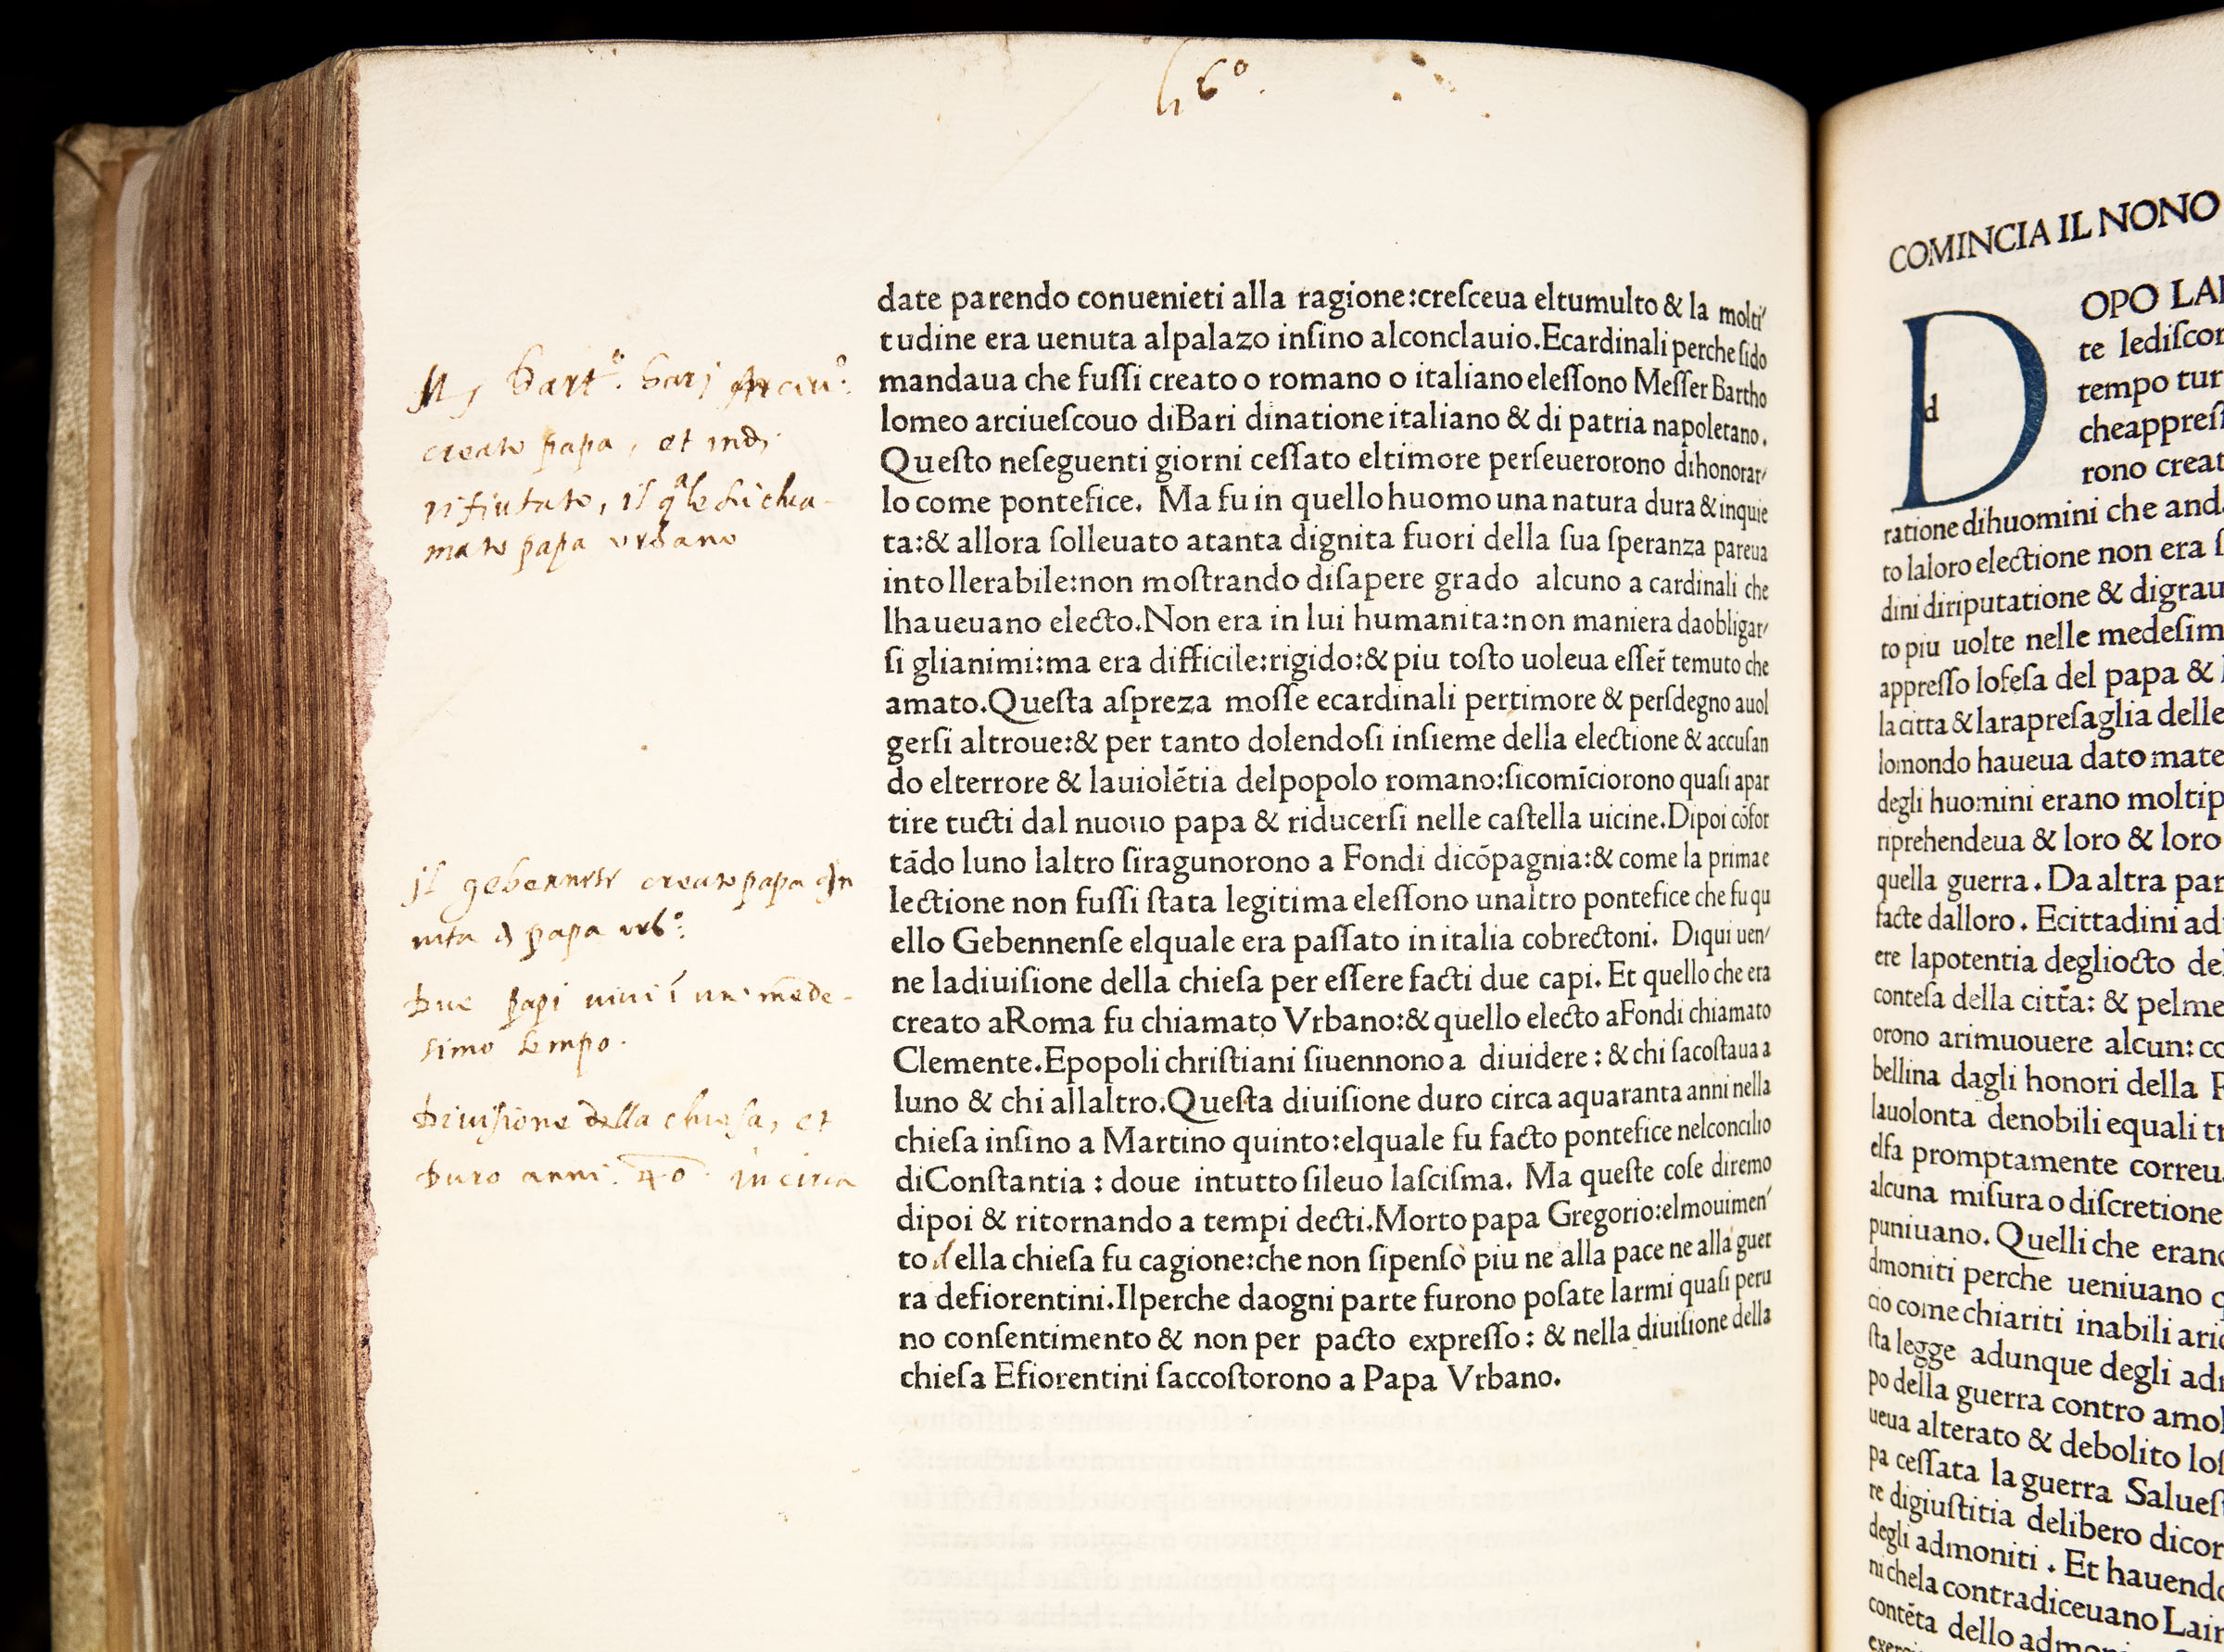 6º
date parendo conuenieti alla ragione:creſceua eltumulto & la molti
tudine era uenuta alpalazo inſino alconclauio.Ecardinali perche ſido
mandaua che fuſſi creato o romano o italiano eleſſono Meſſer Bartho
lomeo arciueſcouo diBari dinatione italiano & di patria napoletano.
Queſto neſeguenti giorni ceſſato eltimore perſeuerorono dihonorar
lo come pontefice. Ma fu in quello huomo una natura dura & inquie
ta:& allora ſolleuato atanta dignita fuori della ſua ſperanza pareua
intollerabile:non moſtrando diſapere grado alcuno a cardinali che
lhaueuano electo.Non era in lui humanita:non maniera daobligar
ſi glianimi:ma era difficile:rigido:& piu toſto uoleua eſſer̄ temuto che
amato.Queſta aſpreza moſſe ecardinali pertimore & perſdegno auol
gerſi altroue:& per tanto dolendoſi inſieme della electione & accuſan
do elterrore & lauiolētia delpopolo romano:ſicomīciorono quaſi apar
tire tucti dal nuouo papa & riducerſi nelle caſtella uicine.Dipoi cōfor
tādo luno laltro ſiragunorono a Fondi dicōpagnia:& come la prima e
lectione non fuſſi ſtata legitima eleſſono unaltro pontefice che fu qu
ello Gebennenſe elquale era paſſato in italia cobrectoni. Diqui uen
ne ladiuiſione della chieſa per eſſere facti due capi. Et quello che era
creato aRoma fu chiamato Vrbano:& quello electo aFondi chiamato
Clemente.Epopoli chriſtiani ſiuennono a diuidere : & chi ſacoſtaua a
luno & chi allaltro.Queſta diuiſione duro circa aquaranta anni nella
chieſa inſino a Martino quinto:elquale fu facto pontefice nelconcilio
diConſtantia : doue intutto ſileuo laſciſma. Ma queſte coſe diremo
dipoi & ritornando a tempi decti.Morto papa Gregorio:elmouimen
to della chieſa fu cagione:che non ſipenſo piu ne alla pace ne alla guer
ra defiorentini.Ilperche daogni parte furono poſate larmi quaſi peru
no conſentimento & non per pacto expreſſo : & nella diuiſione della
chieſa Efiorentini ſaccoſtorono a Papa Vrbano.
Bart. barj
creato papa, et
rifiutato, il qle fu chia-
mato papa urbano
il creato papa
papa urb:
Due papi vivi ī un mēde-
simo tempo.
Divisione della chiesa, et
Duro anni. 40. in circa
COMINCIA IL NONO
D
d
OPO LA
te lediſcor
tempo tur
cheappreſſ
rono creat
ratione dihuomini che and
to laloro electione non era ſ
dini diriputatione & digrau
to piu uolte nelle medeſim
appreſſo lofeſa del papa &
la citta & larapreſaglia delle
lomondo haueua dato mate
degli huomini erano moltip
riprehendeua & loro & loro
quella guerra. Da altra par
facte dalloro. Ecittadini ad
ere lapotentia degliocto de
conteſa della citta: & pelme
orono arimuouere alcun: co
bellina dagli honori della
lauolonta denobili equali tr
elſa promptamente correu
alcuna miſura o diſcretione
puniuano. Quelli che eran
dmoniti perche ueniuano
cio come chiariti inabili ari
ſta legge adunque degli ad
po della guerra contro amo
ueua alterato & debolito loſ
pa ceſſata la guerra Salueſ
re digiuſtitia delibero dicor
degli admoniti . Et hauend
ni chela contradiceuano Lai
contēta dello admo